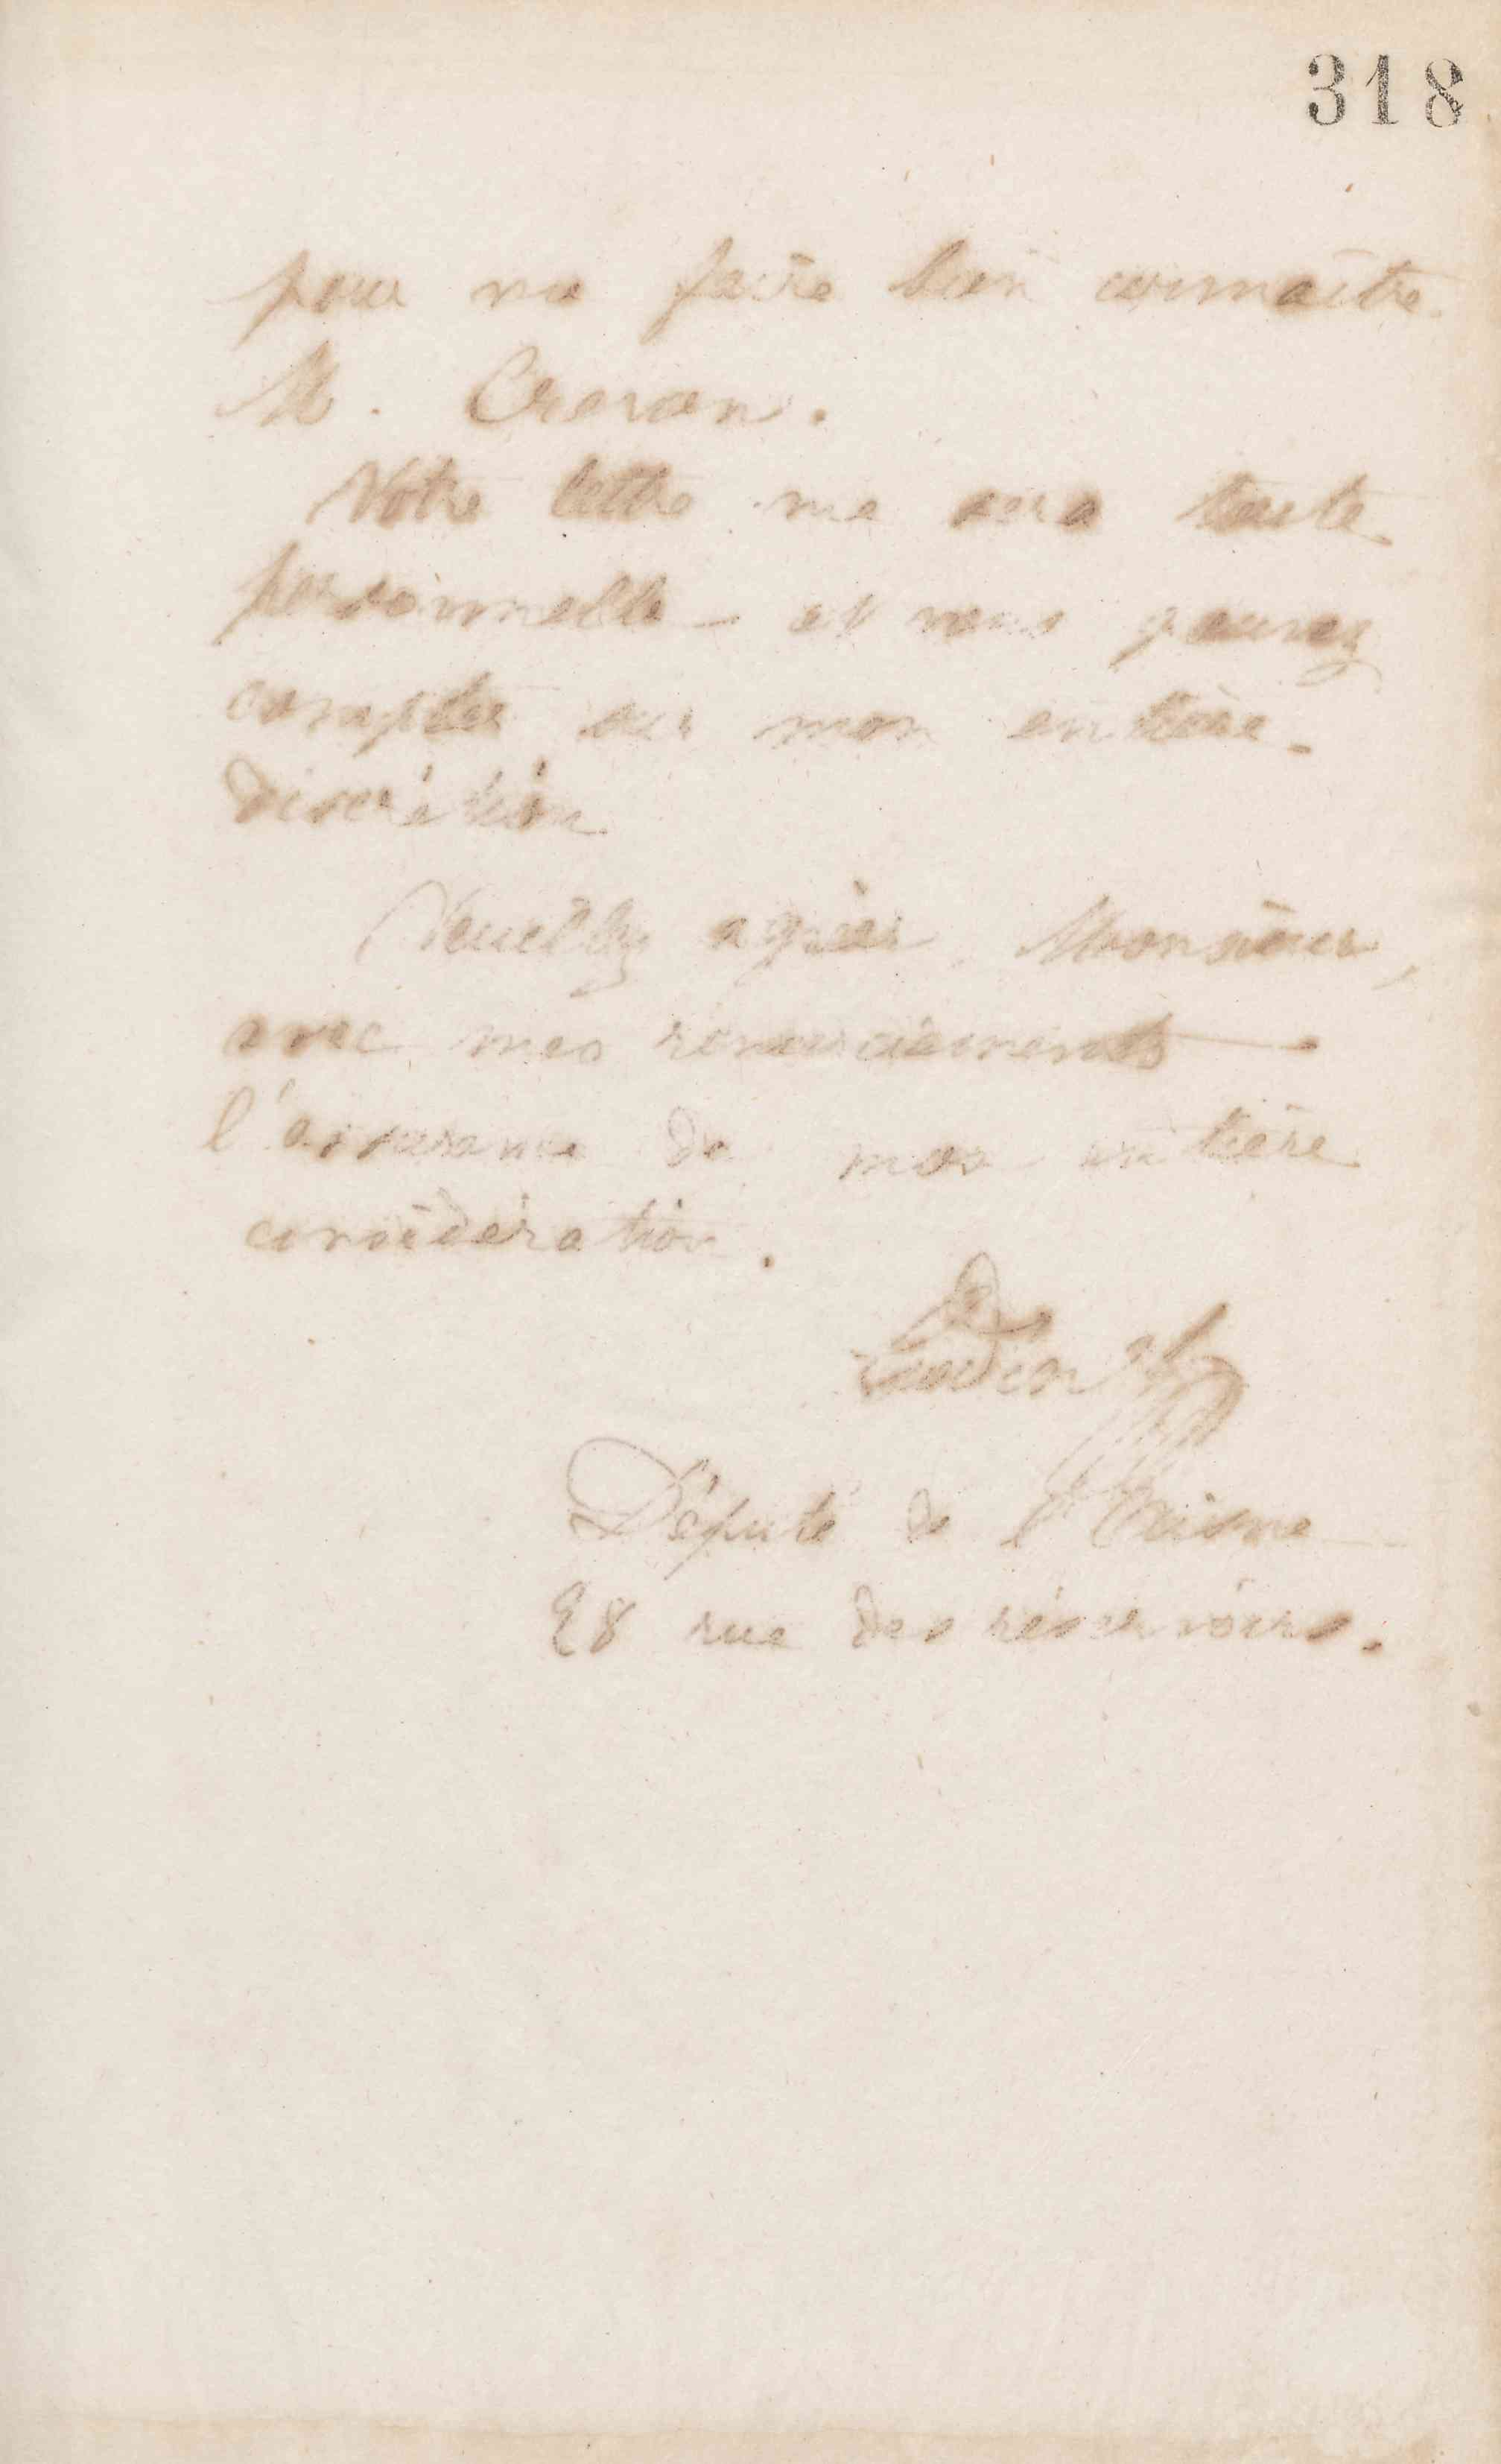 318
pour me faire bien connaître
M. Creron.
Votre lettre me sera toute
personnelle – et vous pouvez
compter sur mon entière
discrétion
Veuillez agréer, Monsieur,
avec mes remerciements
l'assurance de mon entière
considération.
Godin
Député de l'Aisne
28 rue des réservoirs.